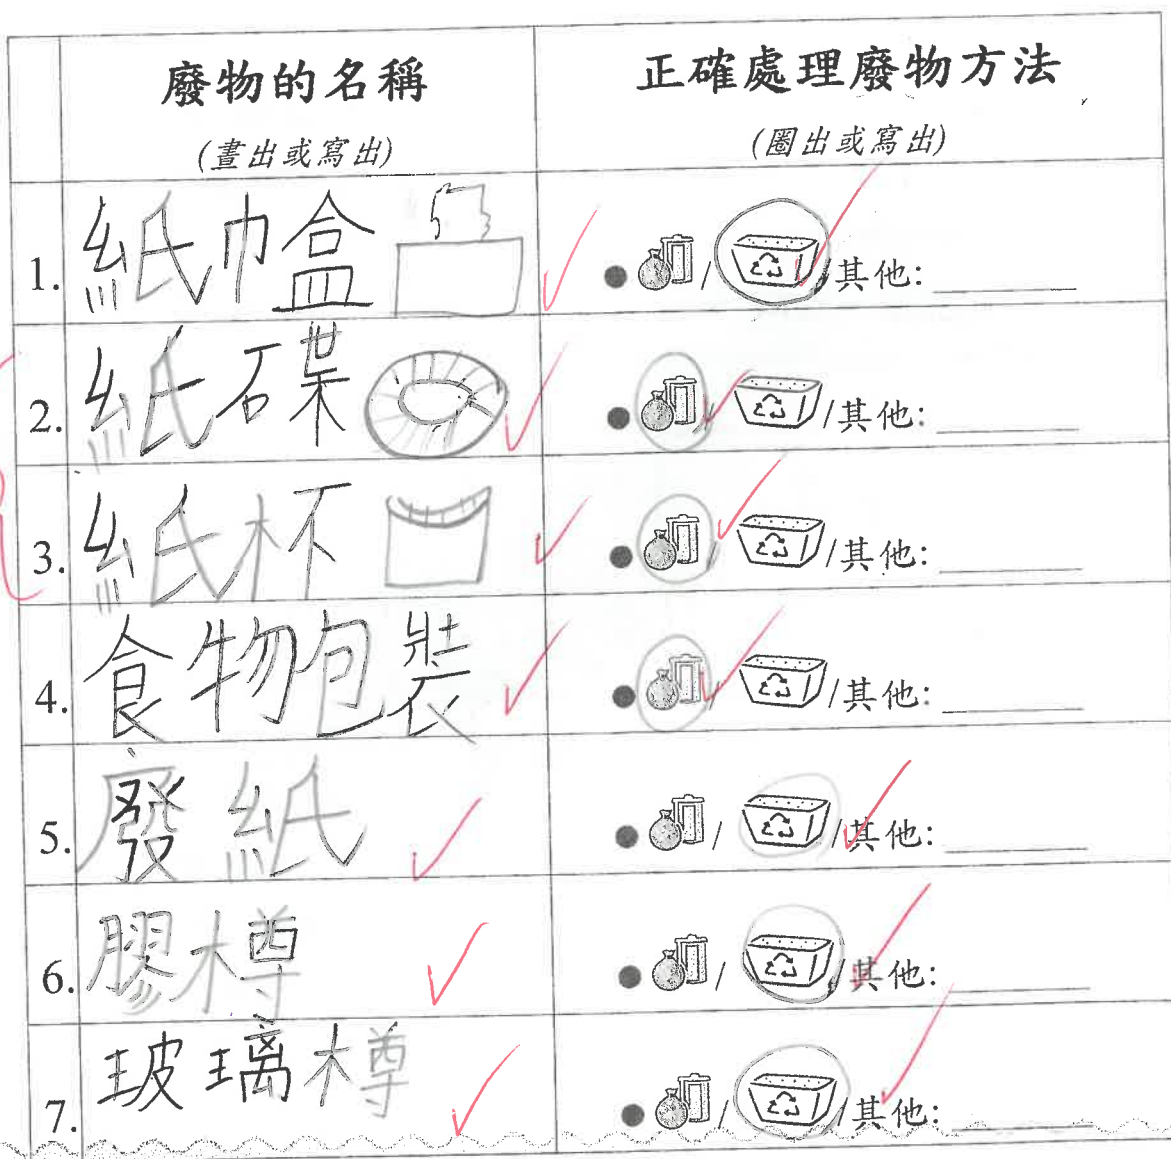 廢物的名稱
(畫出或寫出)
正確處理廢物方法
(圈出或寫出)
1. 紙巾盒 / /其他:
2. 紙碟 / /其他:
3. 紙杯 / /其他:
4. 食物包裝 / /其他:
5. 廢紙 / /其他:
6. 膠樽 / /其他:
7. 玻璃樽 / /其他: